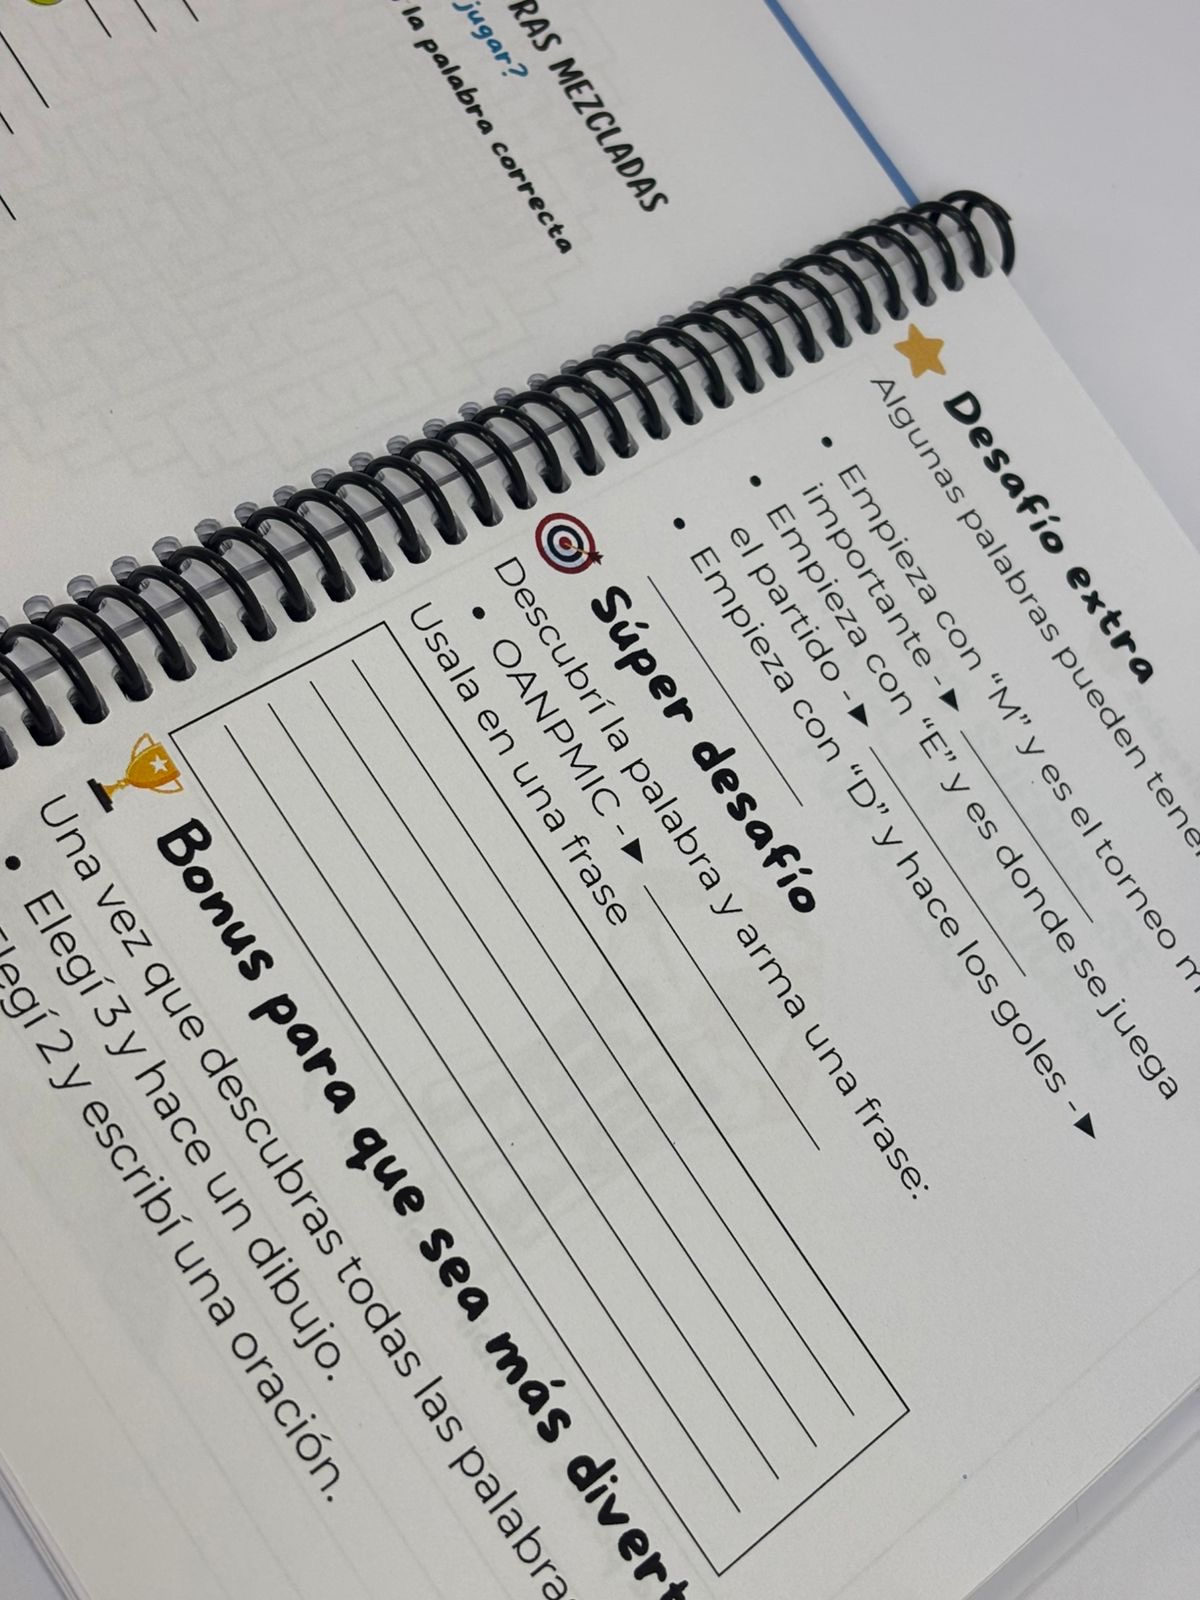 RAS MEZCLADAS
jugar?
la palabra correcta
Desafío extra
Algunas palabras pueden tener
• Empieza con “M” y es el torneo
importante -►
• Empieza con “E” y es donde se juega
el partido -►
• Empieza con “D” y hace los goles -►
Súper desafío
Descubrí la palabra y arma una frase:
• OANPMIC -►
Usala en una frase
Bonus para que sea más divert
Una vez que descubras todas las palabras
• Elegí 3 y hace un dibujo.
Elegí 2 y escribí una oración.